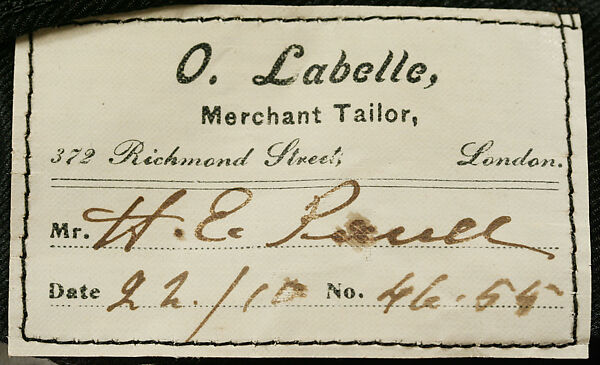 O. Labelle,
Merchant Tailor,
372 Richmond Street, London.
Mr. H. E.
Date 22./10 No. 46.55